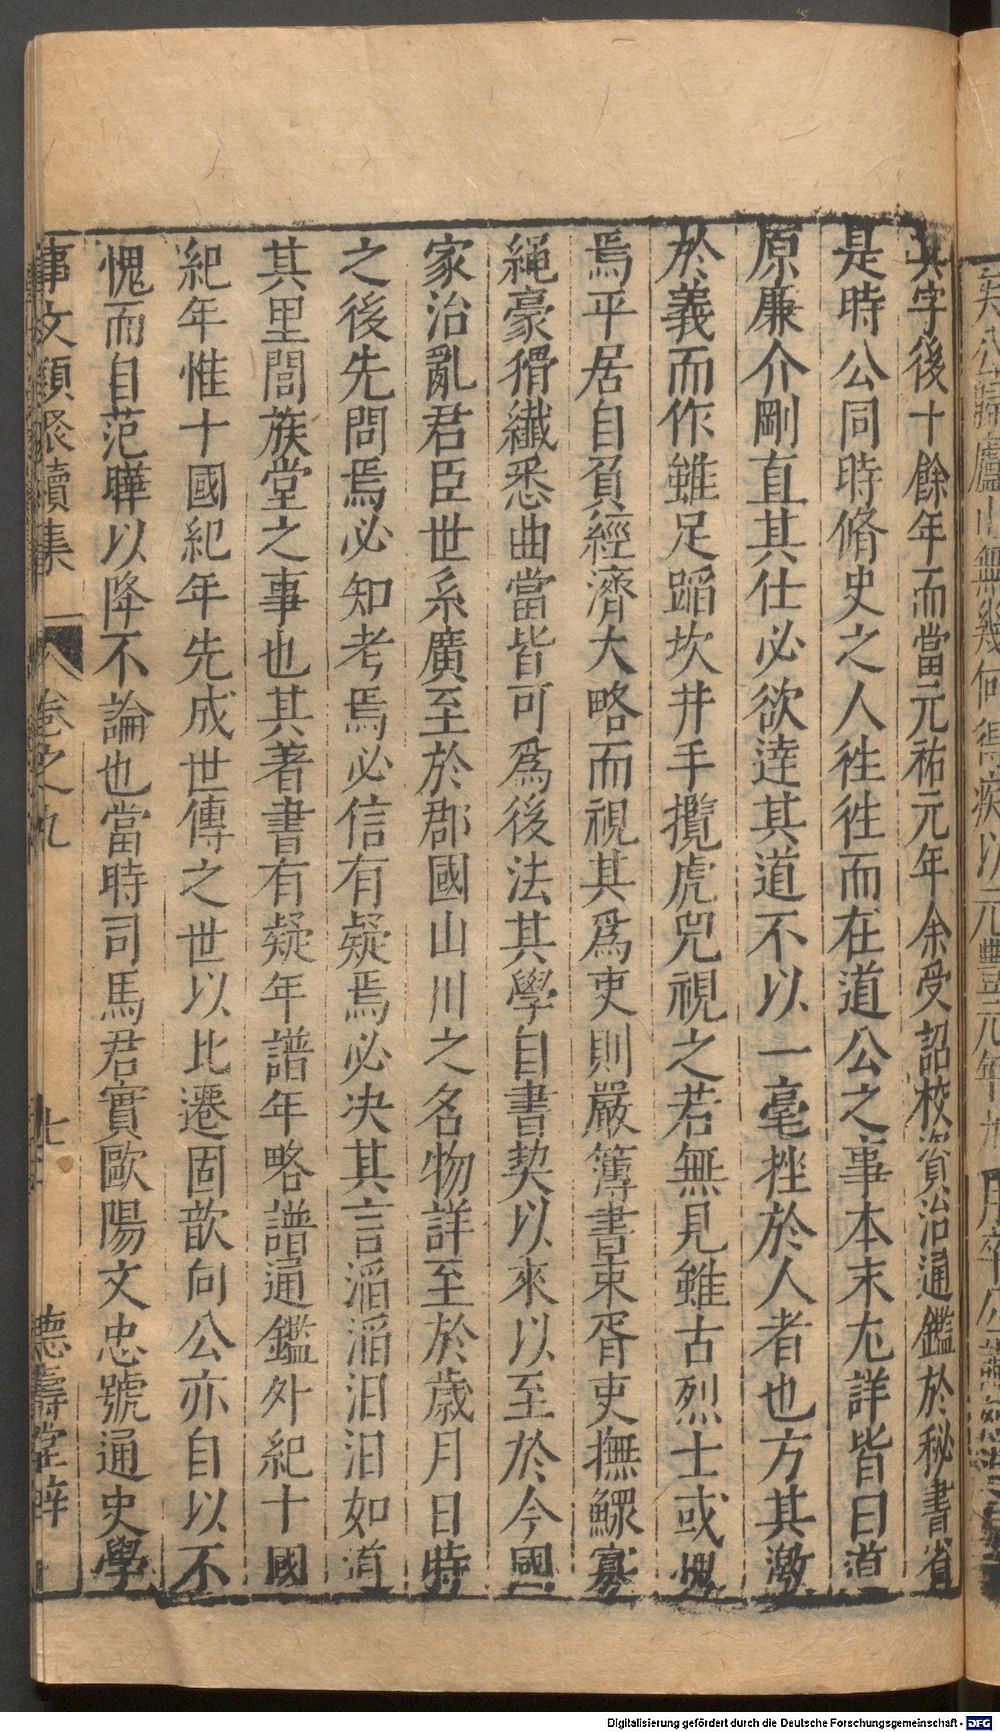 其字後十餘年而當元祐元年余受詔校資治通鑑於秘書省
是時公同時脩史之人徃徃而在道公之事本末尤詳皆曰道
原廉介剛直其仕必欲逹其道不以一毫挫於人者也方其激
於義而作雖足蹈坎井手攬虎兕視之若無見雖古烈士或愧
焉平居自負經濟大略而視其爲吏則嚴簿書束胥吏撫鰥寡
繩豪猾纖悉曲當皆可爲後法其學自書契以來以至於今國
家治亂君臣世系廣至於郡國山川之名物詳至於歲月日時
之後先問焉必知考焉必信有疑焉必决其言滔滔汨汨如道
其里閭族堂之事也其著書有疑年譜年略譜通鑑外紀十國
紀年惟十國紀年先成世傳之世以比遷固歆向公亦自以不
愧而自范曄以降不論也當時司馬君實歐陽文忠號通史學
事文類聚續集 卷之九 七 德壽堂梓
Digitalisierung gefördert durch die Deutsche Forschungsgemeinschaft - DFG